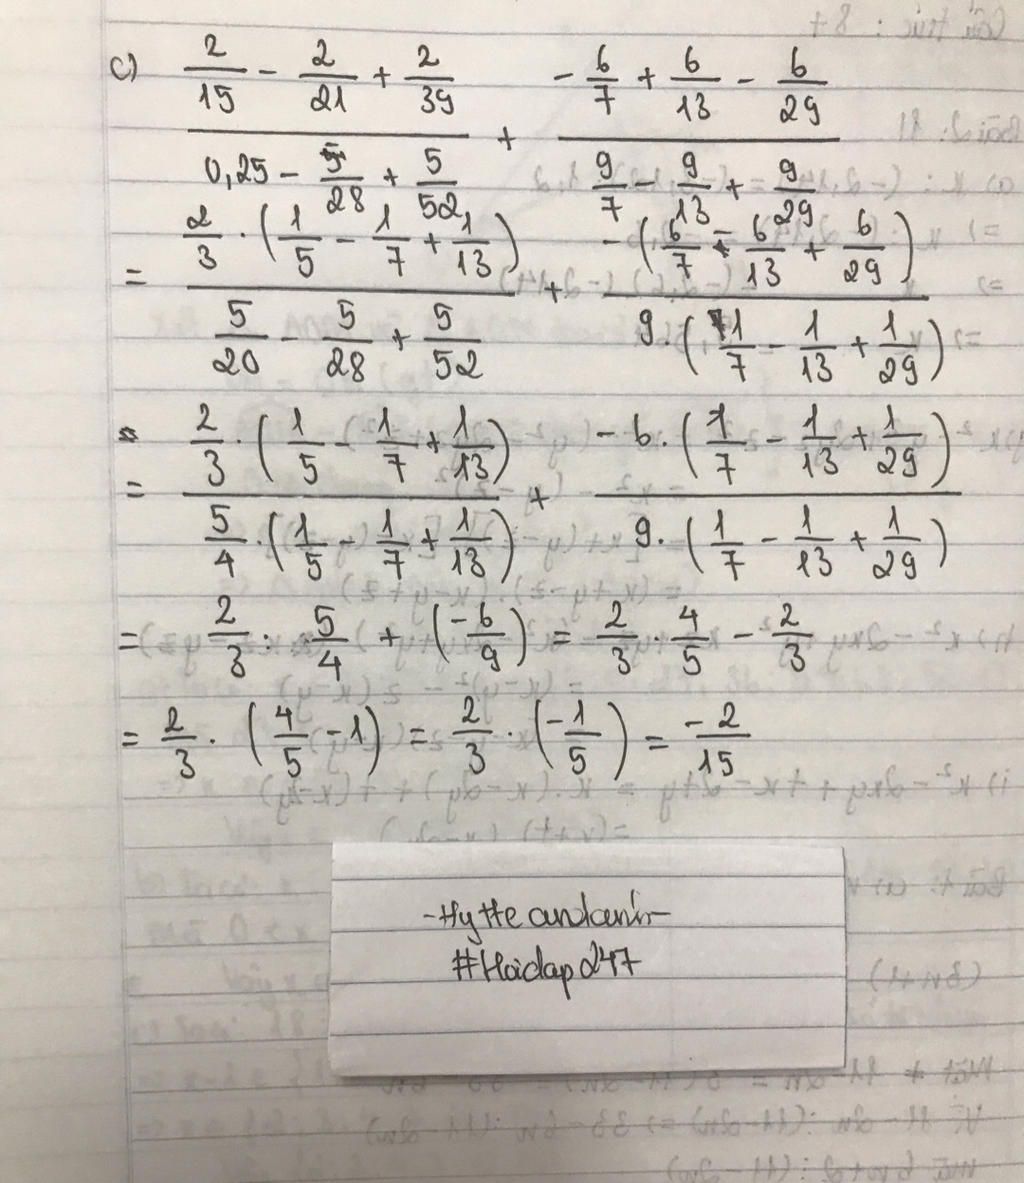 c) \frac{\frac{2}{15} - \frac{2}{21} + \frac{2}{39}}{0,25 - \frac{5}{28} + \frac{5}{52}} + \frac{-\frac{6}{7} + \frac{6}{13} - \frac{6}{29}}{\frac{9}{7} - \frac{9}{13} + \frac{9}{29}}
= \frac{\frac{2}{3} \cdot (\frac{1}{5} - \frac{1}{7} + \frac{1}{13})}{\frac{5}{20} - \frac{5}{28} + \frac{5}{52}} + \frac{-(\frac{6}{7} - \frac{6}{13} + \frac{6}{29})}{9 \cdot (\frac{1}{7} - \frac{1}{13} + \frac{1}{29})}
= \frac{\frac{2}{3} \cdot (\frac{1}{5} - \frac{1}{7} + \frac{1}{13})}{\frac{5}{4} \cdot (\frac{1}{5} - \frac{1}{7} + \frac{1}{13})} + \frac{-6 \cdot (\frac{1}{7} - \frac{1}{13} + \frac{1}{29})}{9 \cdot (\frac{1}{7} - \frac{1}{13} + \frac{1}{29})}
= \frac{2}{3} : \frac{5}{4} + (\frac{-6}{9}) = \frac{2}{3} \cdot \frac{4}{5} - \frac{2}{3}
= \frac{2}{3} \cdot (\frac{4}{5} - 1) = \frac{2}{3} \cdot (\frac{-1}{5}) = \frac{-2}{15}
#Hoidap247